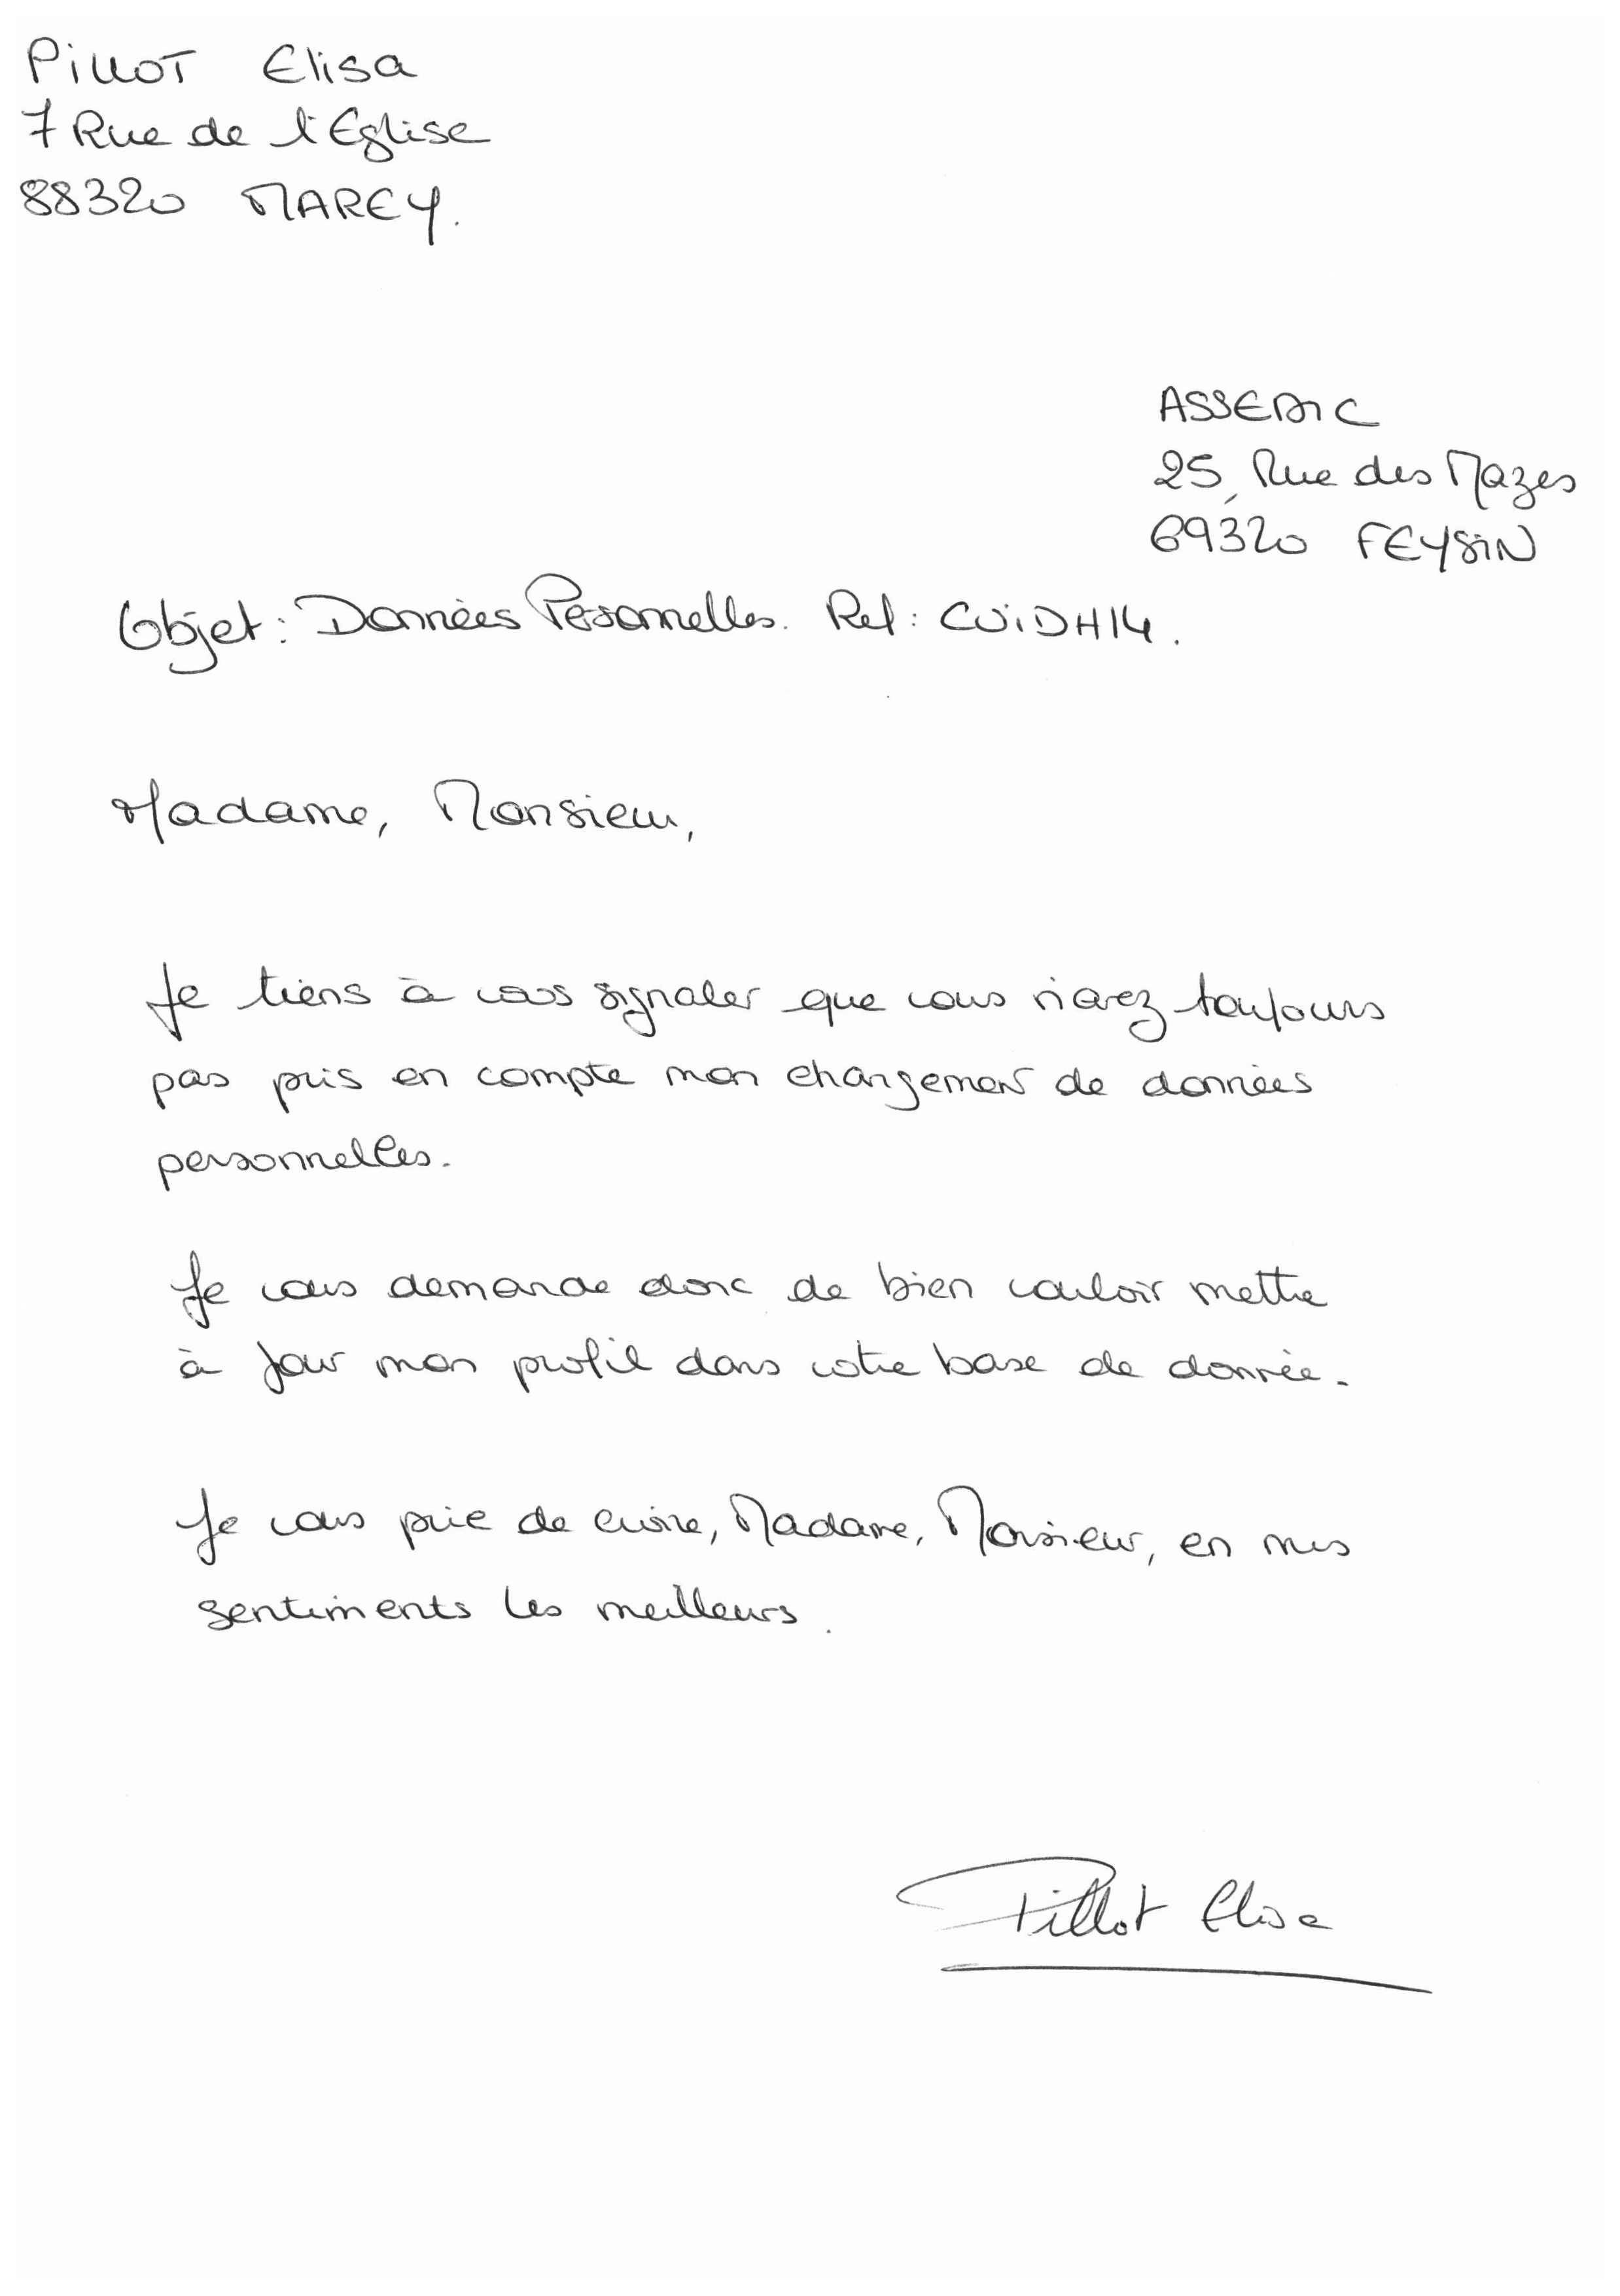 Pillot Elisa
7 Rue de l'Eglise
88320 MAREY.
ASSEDIC
25, Rue des Mazes
69320 FEYSIN
Objet : Données Personnelles. Ref : CUIDH14.
Madame, Monsieur,
Je tiens à vous signaler que vous n'avez toujours
pas pris en compte mon changement de données
personnelles.
Je vous demande donc de bien vouloir mettre
à jour mon profil dans votre base de donnée.
Je vous prie de croire, Madame, Monsieur, en mes
sentiments les meilleurs.
Pillot Elisa